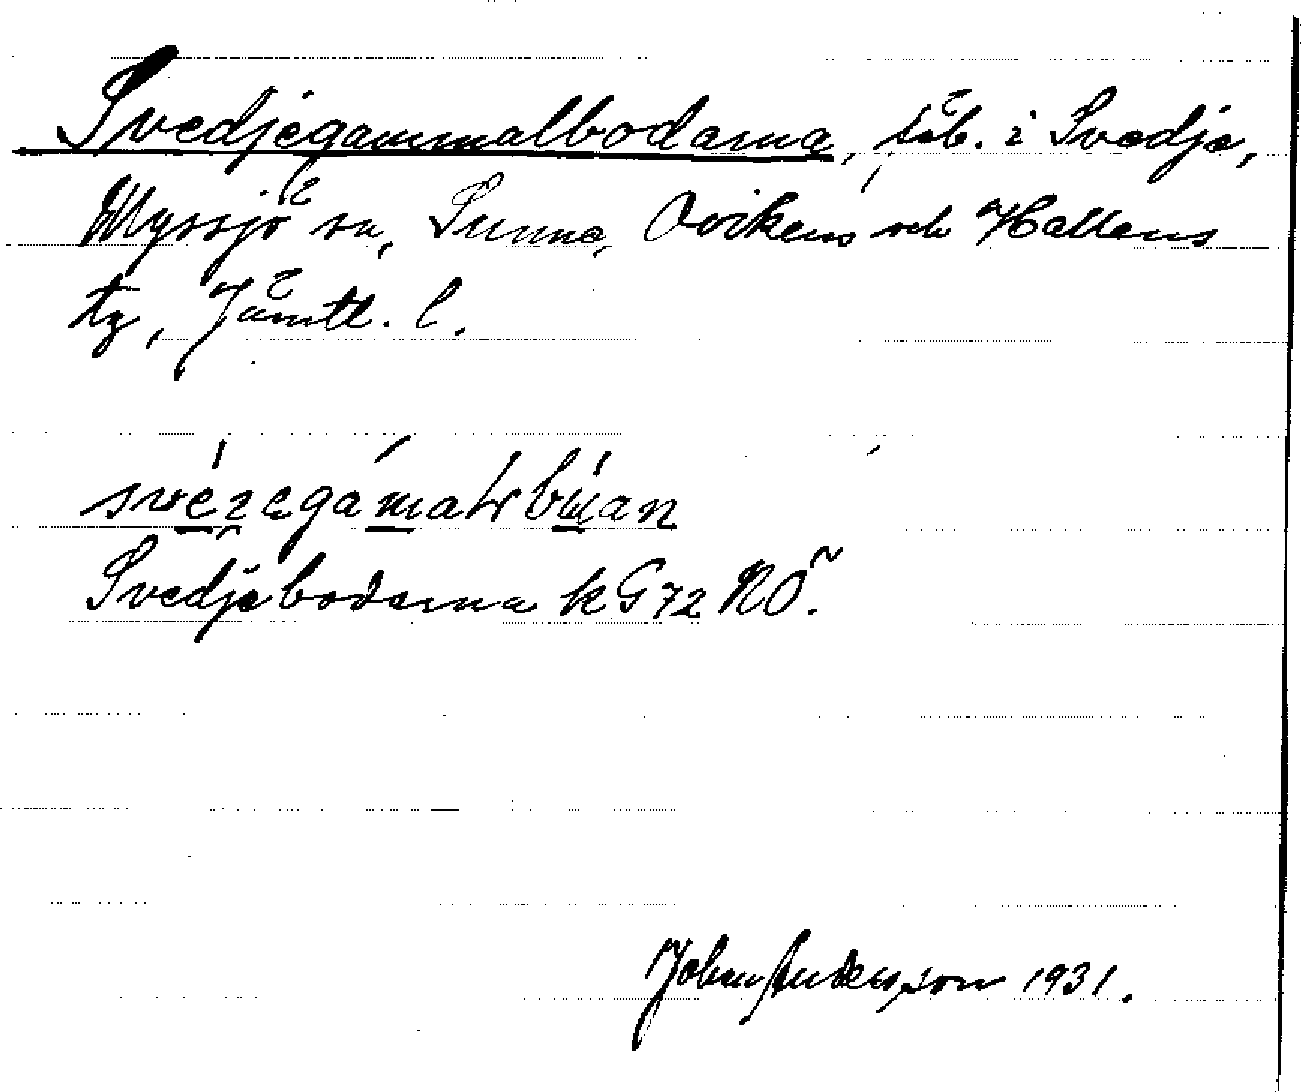 Svedjegammalbodarna, säb. i Svedje,
Myssjö sn, Sunne, Ovikens och Hallens
tg, Jämtl. l.
Svedjebodarna kG72 NÖ.
Johan Andersson 1931.